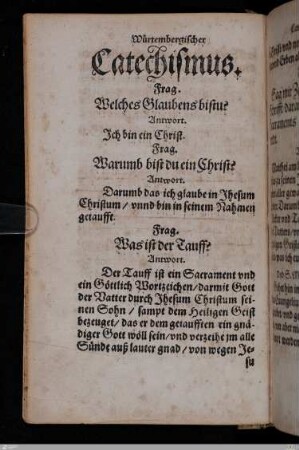 Würtembergischer
Catechismus.
Frag.
Welches Glaubens bistu?
Antwort.
Ich bin ein Christ.
Frag.
Warumb bist du ein Christ?
Antwort.
Darumb das ich glaube in Jhesum
Christum / vnnd bin in seinem Nahmen
getaufft.
Frag.
Was ist der Tauff?
Antwort.
Der Tauff ist ein Sacrament vnd
ein Göttlich Wortzeichen / darmit Gott
der Vatter durch Jhesum Christum sei-
nen Sohn / sampt dem Heiligen Geist
bezeuget / das er dem getaufften ein gnä-
diger Gott wöll sein / vnd verzeihe jm alle
Sünde auß lauter gnad / von wegen Je-
su